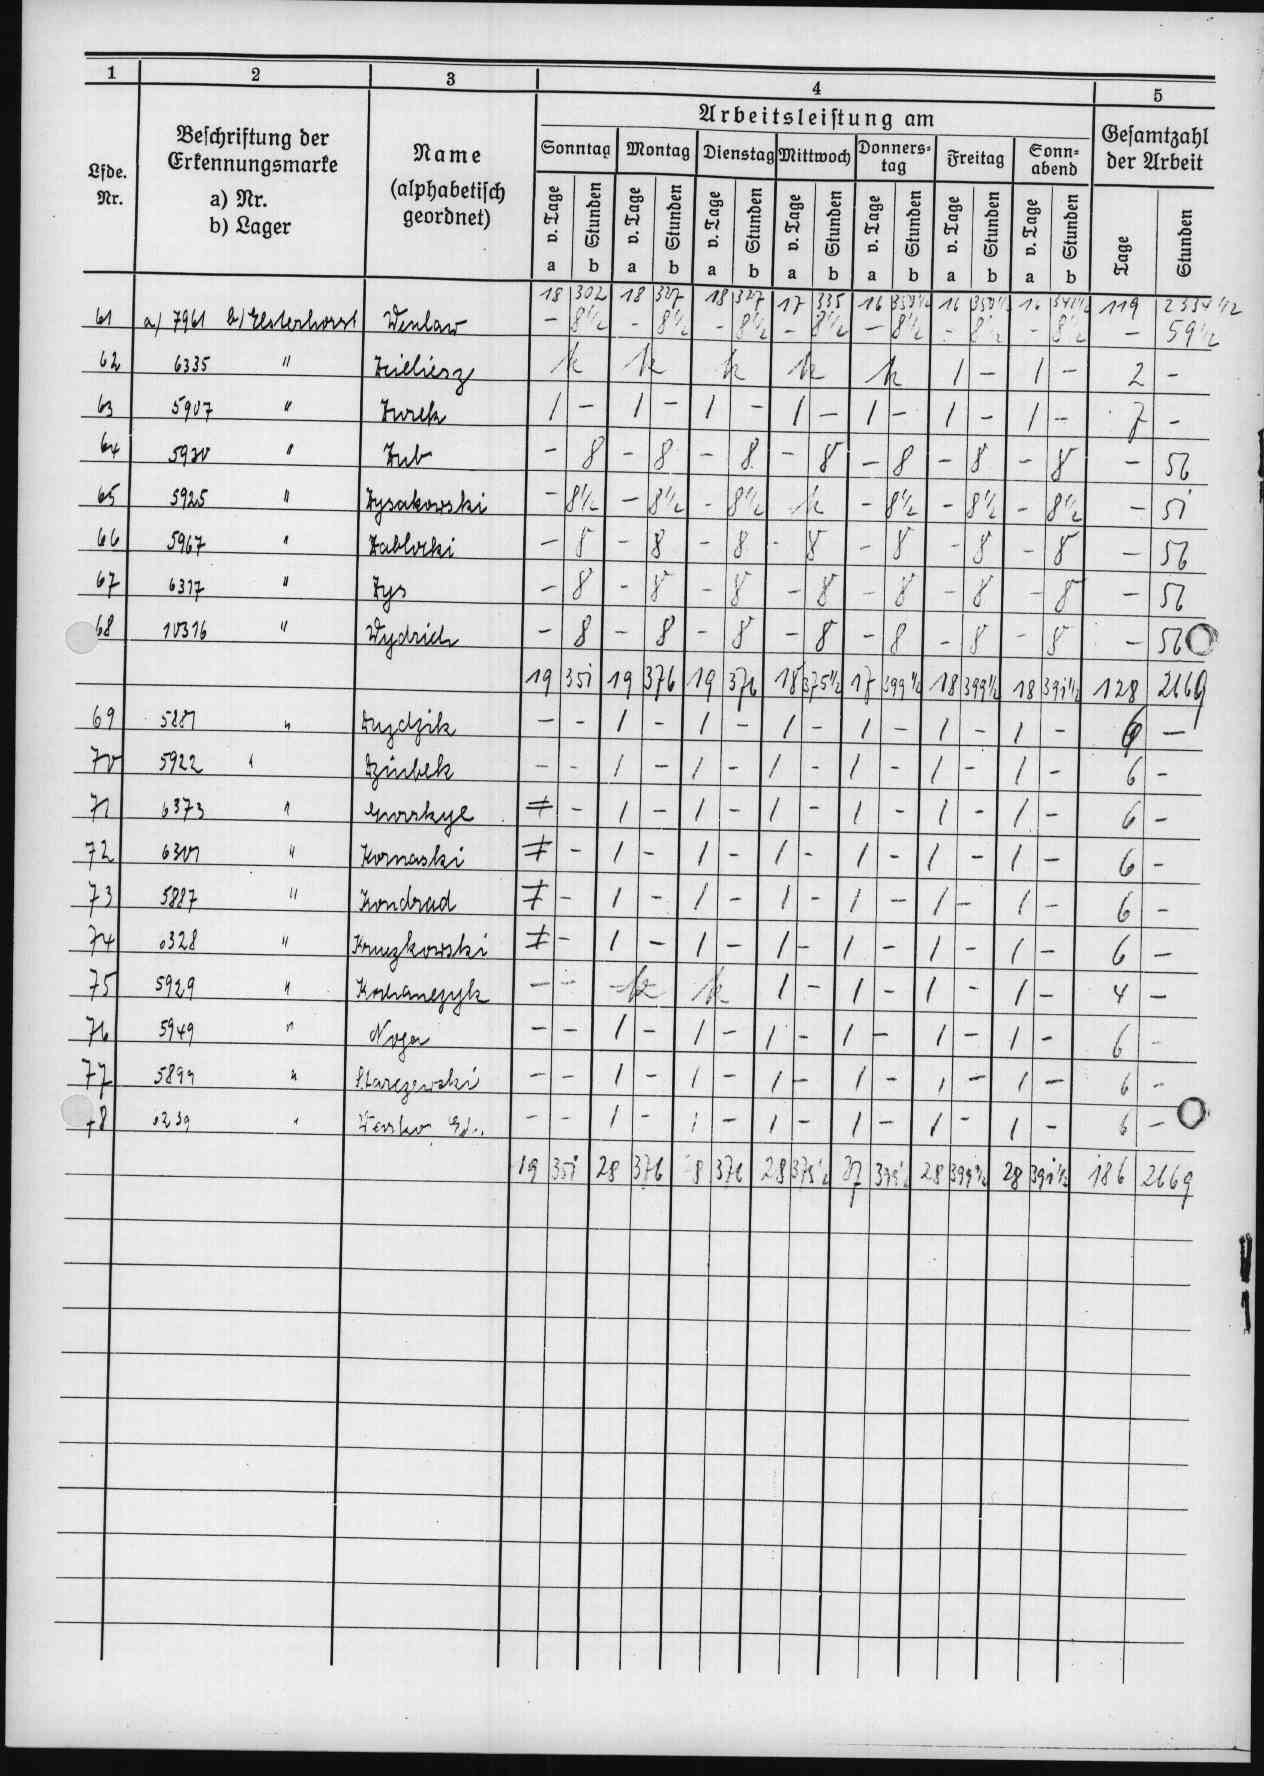 1 2 3 4 5
Lfde. Nr.
Beschriftung der
Erkennungsmarke
a) Nr.
b) Lager
Name
(alphabetisch
geordnet)
Arbeitsleistung am
Sonntag Montag Dienstag Mittwoch Donners-tag Freitag Sonn-abend
Gesamtzahl
der Arbeit
v. Tage Stunden v. Tage Stunden v. Tage Stunden v. Tage Stunden v. Tage Stunden v. Tage Stunden v. Tage Stunden Tage Stunden
a b a b a b a b a b a b a b
18 302 18 327 18 327 17 335 16 16 16 119 2334 1/2
61 a) 7961 b) Elsterhorst Wenlaw - 8 1/2 - 8 1/2 - 8 1/2 - 8 1/2 - 8 1/2 - 8 1/2 - 8 1/2 - 59 1/2
62 6335 " k k k k k 1 - 1 - 2 -
63 5907 " Zurek 1 - 1 - 1 - 1 - 1 - 1 - 1 - 7 -
64 5920 " Zub - 8 - 8 - 8 - 8 - 8 - 8 - 8 - 56
65 5925 " Zysakowski - 8 1/2 - 8 1/2 - 8 1/2 k - 8 1/2 - 8 1/2 - 8 1/2 - 51
66 5967 " Zablocki - 8 - 8 - 8 - 8 - 8 - 8 - 8 - 56
67 6317 " Zys - 8 - 8 - 8 - 8 - 8 - 8 - 8 - 56
68 10316 " Wydrich - 8 - 8 - 8 - 8 - 8 - 8 - 8 - 56
19 351 19 376 19 376 18 375 1/2 17 399 1/2 18 399 1/2 18 391 1/2 128 2669
69 5881 " - - 1 - 1 - 1 - 1 - 1 - 1 - 6 -
70 5922 " - - 1 - 1 - 1 - 1 - 1 - 1 - 6 -
71 6373 " - 1 - 1 - 1 - 1 - 1 - 1 - 6 -
72 6301 " Kornaski - 1 - 1 - 1 - 1 - 1 - 1 - 6 -
73 5887 " Kondrad - 1 - 1 - 1 - 1 - 1 - 1 - 6 -
74 6328 " Kruczkowski - 1 - 1 - 1 - 1 - 1 - 1 - 6 -
75 5929 " Kochanczyk - - k k 1 - 1 - 1 - 1 - 4 -
76 5949 " Noga - - 1 - 1 - 1 - 1 - 1 - 1 - 6 -
77 5899 " Starczewski - - 1 - 1 - 1 - 1 - 1 - 1 - 6 -
78 " - - 1 - 1 - 1 - 1 - 1 - 1 - 6 -
19 351 28 376 28 376 28 375 1/2 27 399 1/2 28 399 1/2 28 391 1/2 186 2669